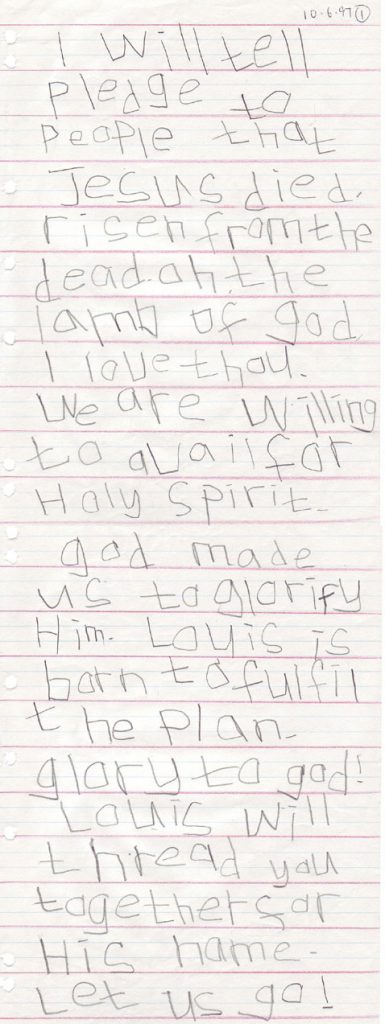 10.6.97 ①
I will tell
pledge to
people that
Jesus died.
risen from the
dead.ah.the
lamb of god
I love thou.
We are willing
to avail for
Holy Spirit.
god made
us to glorify
Him. Louis is
born to fulfil
the plan.
glory to god!
Louis will
thread you
together for
His name.
Let us go!